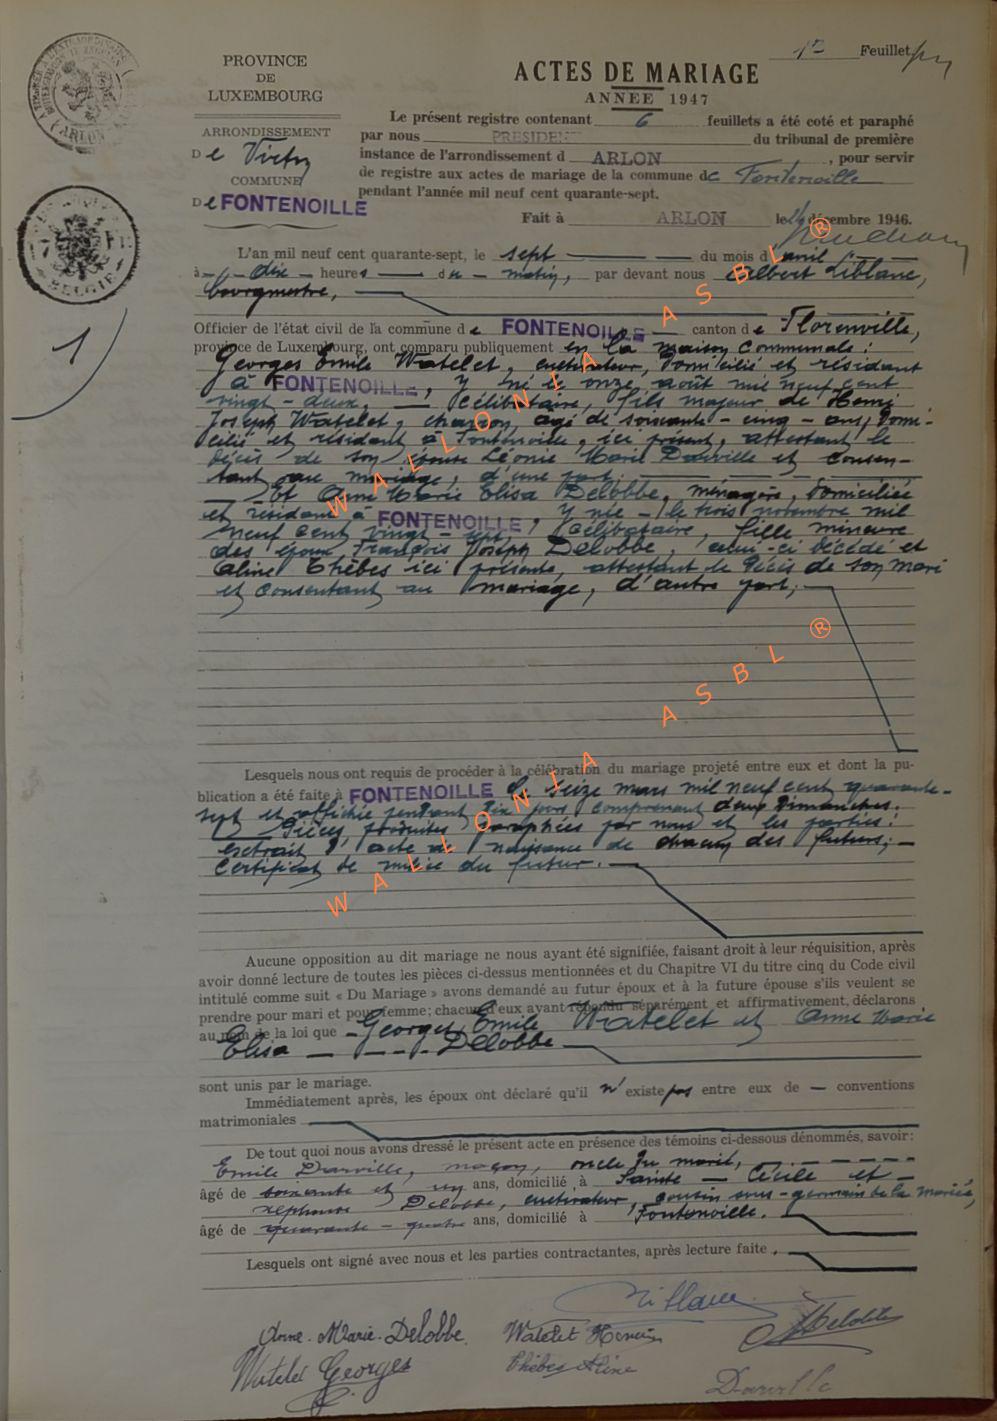 1er Feuillet
PROVINCE
DE
LUXEMBOURG
ACTES DE MARIAGE
ANNEE 1947
ARRONDISSEMENT
De Virton
COMMUNE
De FONTENOILLE
Le présent registre contenant 6 feuillets a été coté et paraphé
par nous PRESIDENT du tribunal de première
instance de l'arrondissement d ARLON, pour servir
de registre aux actes de mariage de la commune de Fontenoille
pendant l'année mil neuf cent quarante-sept.
Fait à ARLON le décembre 1946.
ARLON
BELGIE
1
L'an mil neuf cent quarante-sept, le sept du mois d'avril
à dix heures du matin, par devant nous Albert Liblanc,
bourgmestre,
Officier de l'état civil de la commune de FONTENOILLE canton de Florenville,
province de Luxembourg, ont comparu publiquement en la maison communale :
Georges Emile Watelet, cultivateur, domicilié et résidant
à FONTENOILLE, y né le onze août mil neuf cent
vingt-deux, célibataire, fils majeur de Henri
Joseph Watelet, charron, âgé de soixante-cinq ans, domi-
cilié et résidant à Fontenoille, ici présent, attestant le
décès de son épouse Léonie Marie Darville et consen-
tant au mariage, d'une part,
Et Anne Marie Elisa Delobbe, ménagère, domiciliée
et résidant à FONTENOILLE, y née le trois novembre mil
neuf cent vingt-sept, célibataire, fille mineure
des époux François Joseph Delobbe, celui-ci décédé et
Aline Thèbes ici présente, attestant le décès de son mari
et consentant au mariage, d'autre part,
Lesquels nous ont requis de procéder à la célébration du mariage projeté entre eux et dont la pu-
blication a été faite à FONTENOILLE le seize mars mil neuf cent quarante-
sept et affichée pendant dix jours comprenant deux Dimanches.
Pièces produites paraphées par nous et les parties :
extrait d'acte de naissance de chacun des futurs ;
certificat de milice du futur.
Aucune opposition au dit mariage ne nous ayant été signifiée, faisant droit à leur réquisition, après
avoir donné lecture de toutes les pièces ci-dessus mentionnées et du Chapitre VI du titre cinq du Code civil
intitulé comme suit « Du Mariage » avons demandé au futur époux et à la future épouse s'ils veulent se
prendre pour mari et pour femme ; chacun d'eux ayant répondu séparément et affirmativement, déclarons
au nom de la loi que Georges Emile Watelet et Anne Marie
Elisa Delobbe
sont unis par le mariage.
Immédiatement après, les époux ont déclaré qu'il n'existe pas entre eux de conventions
matrimoniales
De tout quoi nous avons dressé le présent acte en présence des témoins ci-dessous dénommés, savoir :
Emile Darville, maçon, oncle du marié,
âgé de soixante et un ans, domicilié à Sainte-Cécile et
Alphonse Delobbe, cultivateur, cousin sous-germain de la mariée,
âgé de quarante-quatre ans, domicilié à Fontenoille.
Lesquels ont signé avec nous et les parties contractantes, après lecture faite.
Liblanc
Anne-Marie Delobbe
Watelet Henri
Delobbe
Watelet Georges
Thèbes Aline
Darville
WALLONIA ASBL ®
WALLONIA ASBL ®